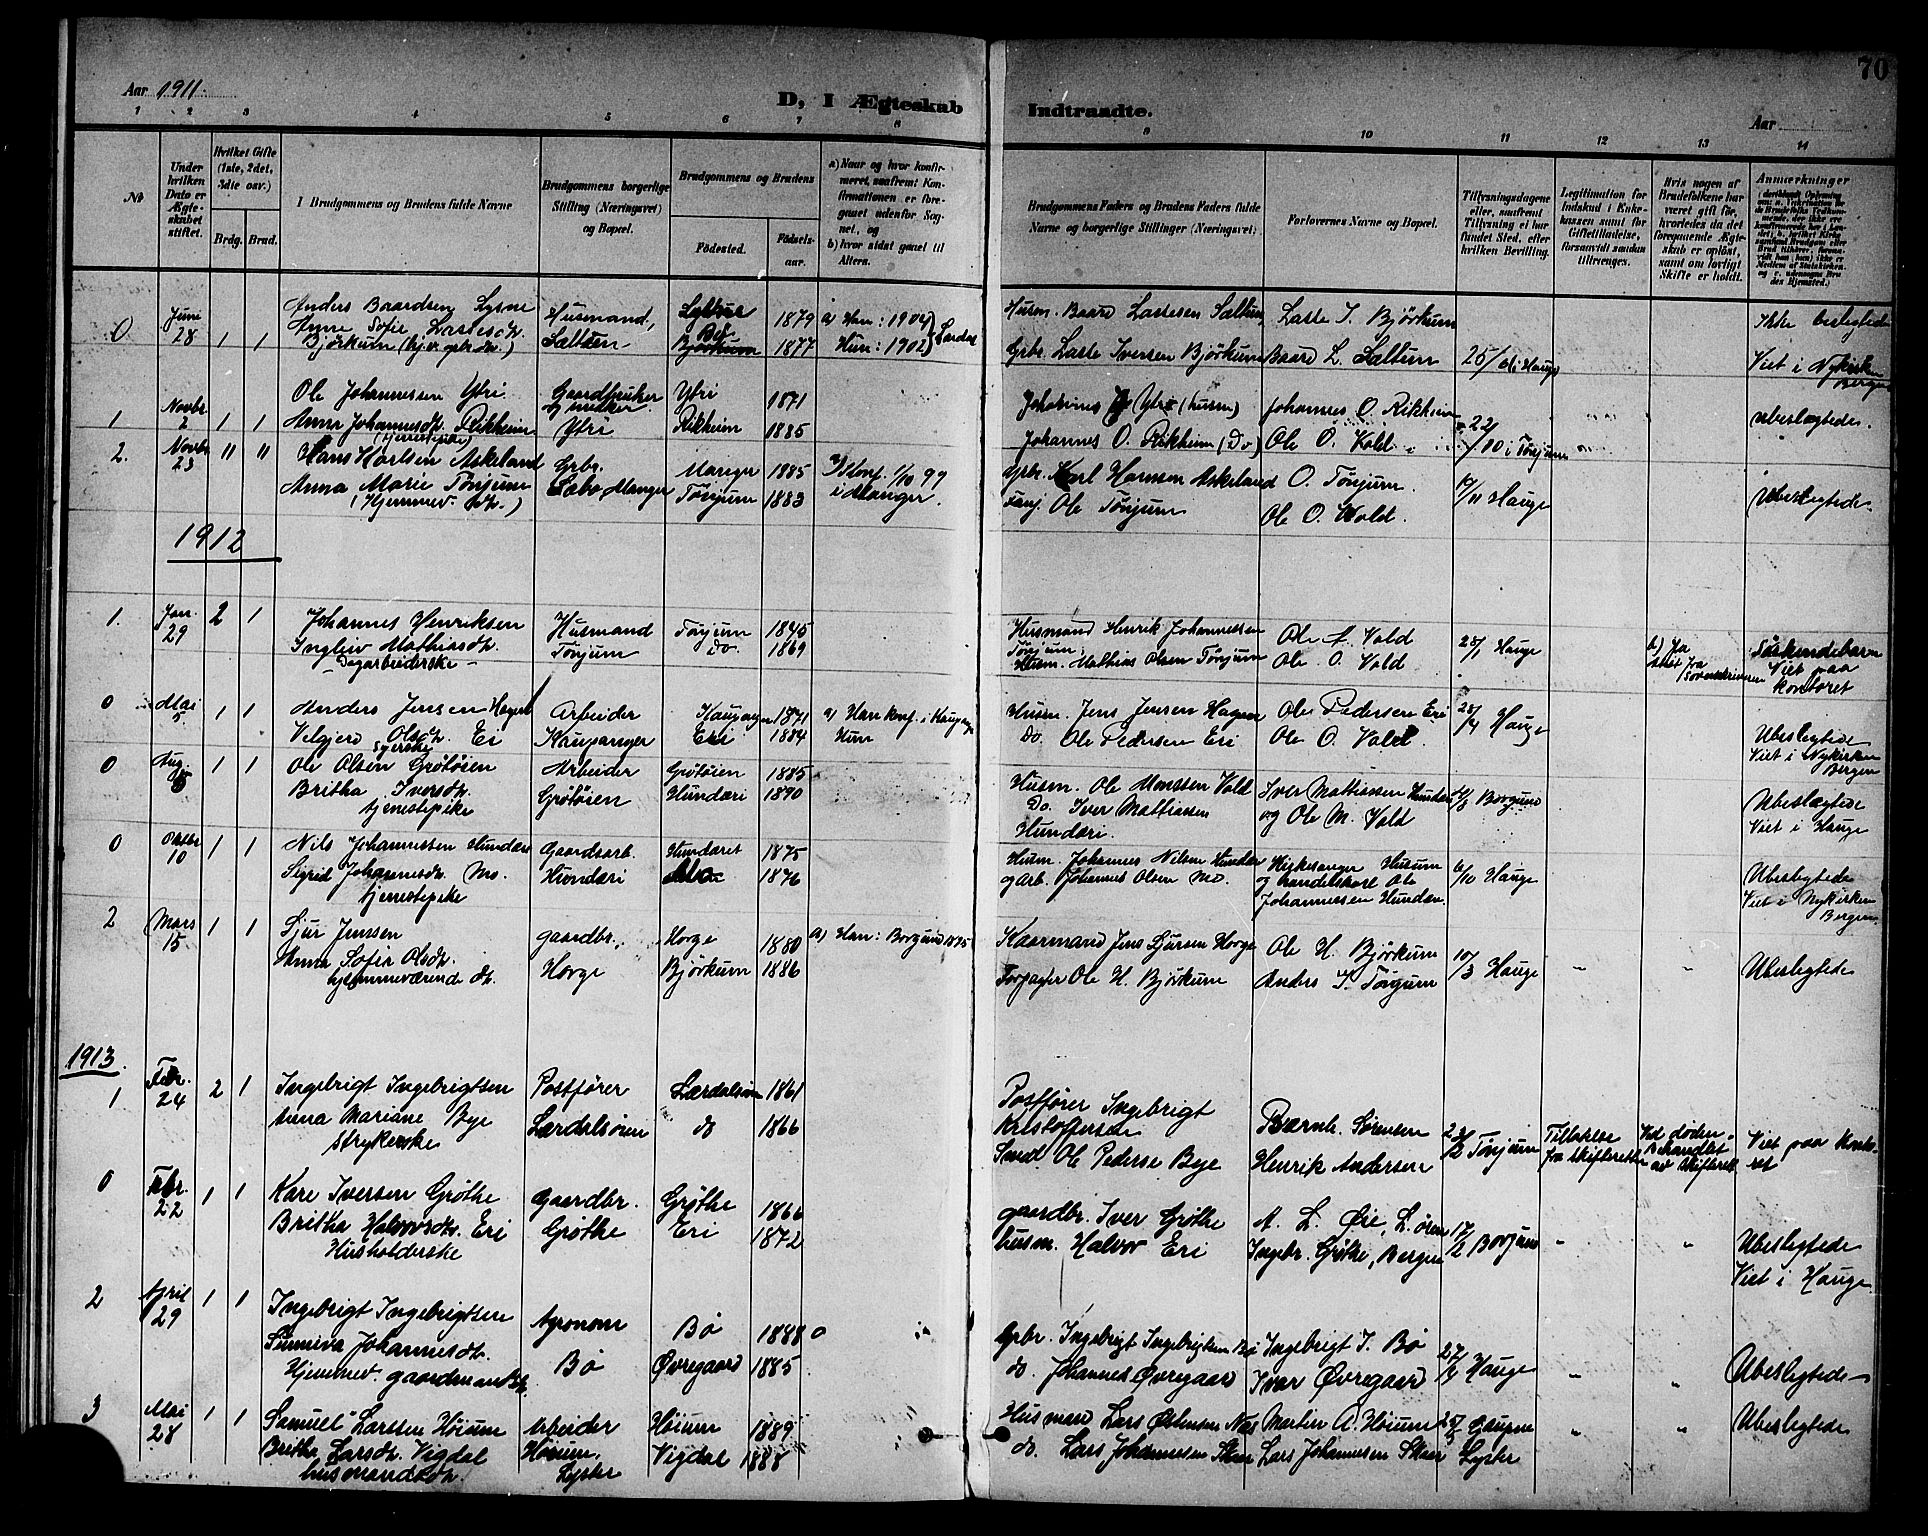 Aar 1911.
D, I Ægteskab
Indtraadte.
Aar
70
1 2 3 4 5 6 7 8 9 10 11 12 13 14
Nr
Under hvilken Dato er Ægteskabet stiftet.
Hvilket Gifte (1ste, 2det, 3die osv.)
Brdg. Brud.
I Brudgommens og Brudens fulde Navne
Brudgommens borgerlige Stilling (Næringsvei) og Bopæl.
Brudgommens og Brudens
Fødested.
Fødselsaar.
a) Naar og hvor konfirmeret, saafremt Konfirmationen er foregaaet udenfor Sognet, og
b) hvor sidst gaaet til Alters.
Brudgommens Faders og Brudens Faders fulde Navne og borgerlige Stillinger (Næringsvei).
Forlovernes Navne og Bopæl.
Tillysningsdagene eller, saafremt Tillysning ei har fundet Sted, efter hvilken Bevilling.
Legitimation for Indskud i Enkekassen samt for Giftetilladelse, forsaavidt saadan tiltrænges.
Hvis nogen af Brudefolkene har været gift før, hvorledes da det foregaaende Ægteskab er opløst, samt om lovligt Skifte er holdt.
Anmærkninger
0 Juni 28 1 1
Anders Baardsen Lysne
Anne Sofie Lassesdt.
Bjørkum (hjv. gbr. dt.)
Husmand, Sæltun
Bø
Bjørkum
1879
1877
a) Han: 1904
Hun: 1902
Husm. Baard Lassesen Sæltun
Gbr. Lasse Iversen Bjørkum
Lasse I. Bjørkum
Baard L. Sæltun
25/ i Hauge
Ikke beslegtede
Viet i Nykirken Bergen
1 Novbr 2 1 1
Ole Johannessen Ytri
Anna Johannesdt. Rikheim
Gaardbruker
Ytri
Ytri
Rikheim
1871
1885
Johannes Ytre (husm)
Johannes O. Rikheim (Do)
Johannes O. Rikheim
Ole O. Vold
22/10 i Tønjum
ubeslægtede.
2. Novbr 23 " "
Hans Karlsen Askeland
Anna Marie Tønjum
(Hjemmev. dt.)
Gbr.
Sæbø Manger
Manger
Tønjum
1885
1883
Konf. 1/10 99
i Manger.
Gbr. Karl Hansen Askeland
Ole Tønjum
O. Tønjum.
Ole O. Vold.
19/11 Hauge
Ubeslegtede
1912
1. Jan. 29 2 1
Johannes Henriksen
Ingliv Mathiasdt.
Dagarbeiderske
Husmand
Tønjum
Tønjum
Do.
1845
1869
Husmand Henrik Johannessen
Tønjum
Husm. Mathias Olsen Tønjum
Ole A. Vold
Ole O. Vold
28/1 Hauge
b) Ja
skift. fra sorenskriveren
Søskendebarn
Viet paa kontoret
0 Mai 5 1 1
Anders Jensen Hagen
Velgjerd Olsdt. Eri
syerske
Arbeider
Kaupanger
Kaupanger
Eri
1871
1884
a) Han konf. i Kaupanger
Hun
Husm. Jens Jensen Hagen
Do. Ole Pedersen Eri
Ole Pedersen Eri
Ole O. Vold.
28/4 Hauge
Ubeslegtede
Viet i Nykirken
Bergen
0 Aug. 1 1
Ole Olsen Grøtøien
Britha Iversdt.
tjenestepike
Arbeider
Grøtøien
Grøtøien
Hundæri
1885
1890
Husm. Ole Monssen Vold
Do. Iver Mathiassen
Hundæri.
Iver Mathiassen Hundæri
og Ole M. Vold
4/8 Borgund
Ubeslægtede
Viet i Hauge
0 Oktbr 10 1 1
Nils Johannessen Hundæri
Sigrid Johannesdt. Mo.
tjenestepike
Gaardsarb.
Hundæri
Hundæret
Mo
1875
1876
Husm. Johannes Nilsen Hundæri
og Arb. Johannes Olsen Mo.
Kirkesanger Husum
og handelskarl Ole
Johannessen Hundæri
6/10 Hauge
Ubeslegtede
Viet i Nykirken
Bergen.
2 Mars 15 1 1
Sjur Jenssen
Anna Sofie Olsdt.
hjemmeværende dt.
gaardbr.,
Horge
Horge
Bjørkum
1880
1886
a) Han: Borgund 1895
Kaarmand Jens Sjursen Horge
Forpagter Ole H. Bjørkum
Ole H. Bjørkum
Anders I. Tønjum
10/3 Hauge
" "
Ubeslegtede
1913.
1 Febr. 24 2 1
Ingebrigt Ingebrigtsen
Anna Mariane Bye
strykerske
Postfører
Lærdalsøren
Lærdalsøren
do
1861
1866
Postfører Ingebrigt
Kristoffersen
Smed Ole Pederse Bye
Bernh. Sørensen
Henrik Andersen
23/2 Tønjum
Tilladelse
fra skifteretten
Ved døden
Behandlet
av skifteret
Viet paa kontoret
0 Febr. 22 1 1
Kare Iversen Grøthe
Britha Halvorsdt. Eri
Husholderske
Gaardbr.
Grøthe
Grøthe
Eri
1866
1872
gaardbr. Iver Grøthe
husm. Halvor Eri
A. L. Øie, L.øren
Ingebr. Grøthe, Bergen
17/2 Borgund
" "
Ubeslegtede
Viet i Hauge
2 April 29 1 1
Ingebrigt Ingebrigtsen
Sunneva Johannesdt.
Hjemmev. gaardmandsdt.
Agronom
Bø
Bø
Øvregaard
1888
1885
Gbr. Ingebrigt Ingebrigtsen Bø
do. Johannes Øvregaard
Ingebrigt I. Bø
Ivar Øvregaard
27/4 Hauge
" "
Ubeslegtede
3 Mai 28 1 1
Samuel Larssen Høium
Britha Larsdt. Vigdal
husmandsdt.
Arbeider
Høium,
Lyster
Høium
Vigdal
1889
1888
Husman Lars Østensen Næs
do. Lars Johannessen Skaar
Martin A. Høium
Lars Johannessen Skaar
25/5 Gaupne
Lyster
" "
Ubeslegtede